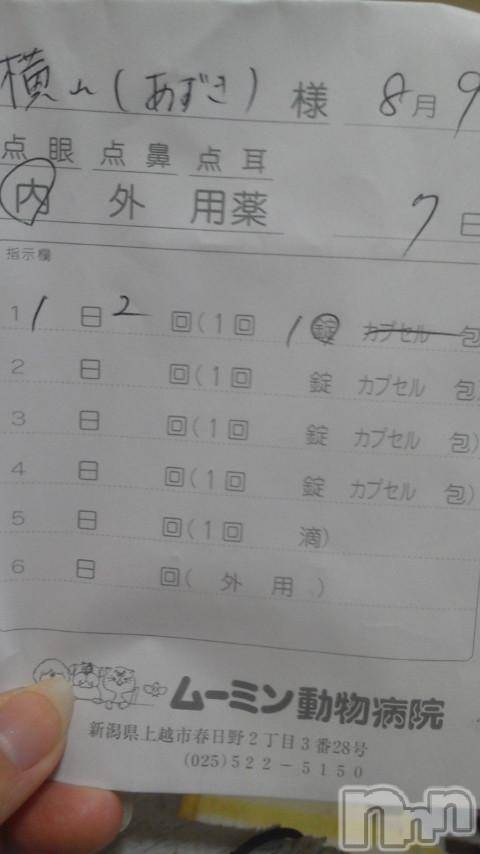 横山(あずき) 様 8月9
点眼 点鼻 点耳
内 外 用薬 7日
指示欄
1 1日2回(1回 1錠 カプセル 包)
2 日 回(1回 錠 カプセル 包)
3 日 回(1回 錠 カプセル 包)
4 日 回(1回 錠 カプセル 包)
5 日 回(1回 滴)
6 日 回( 外 用 )
ムーミン動物病院
新潟県上越市春日野2丁目3番28号
(025)522-5150
nnn